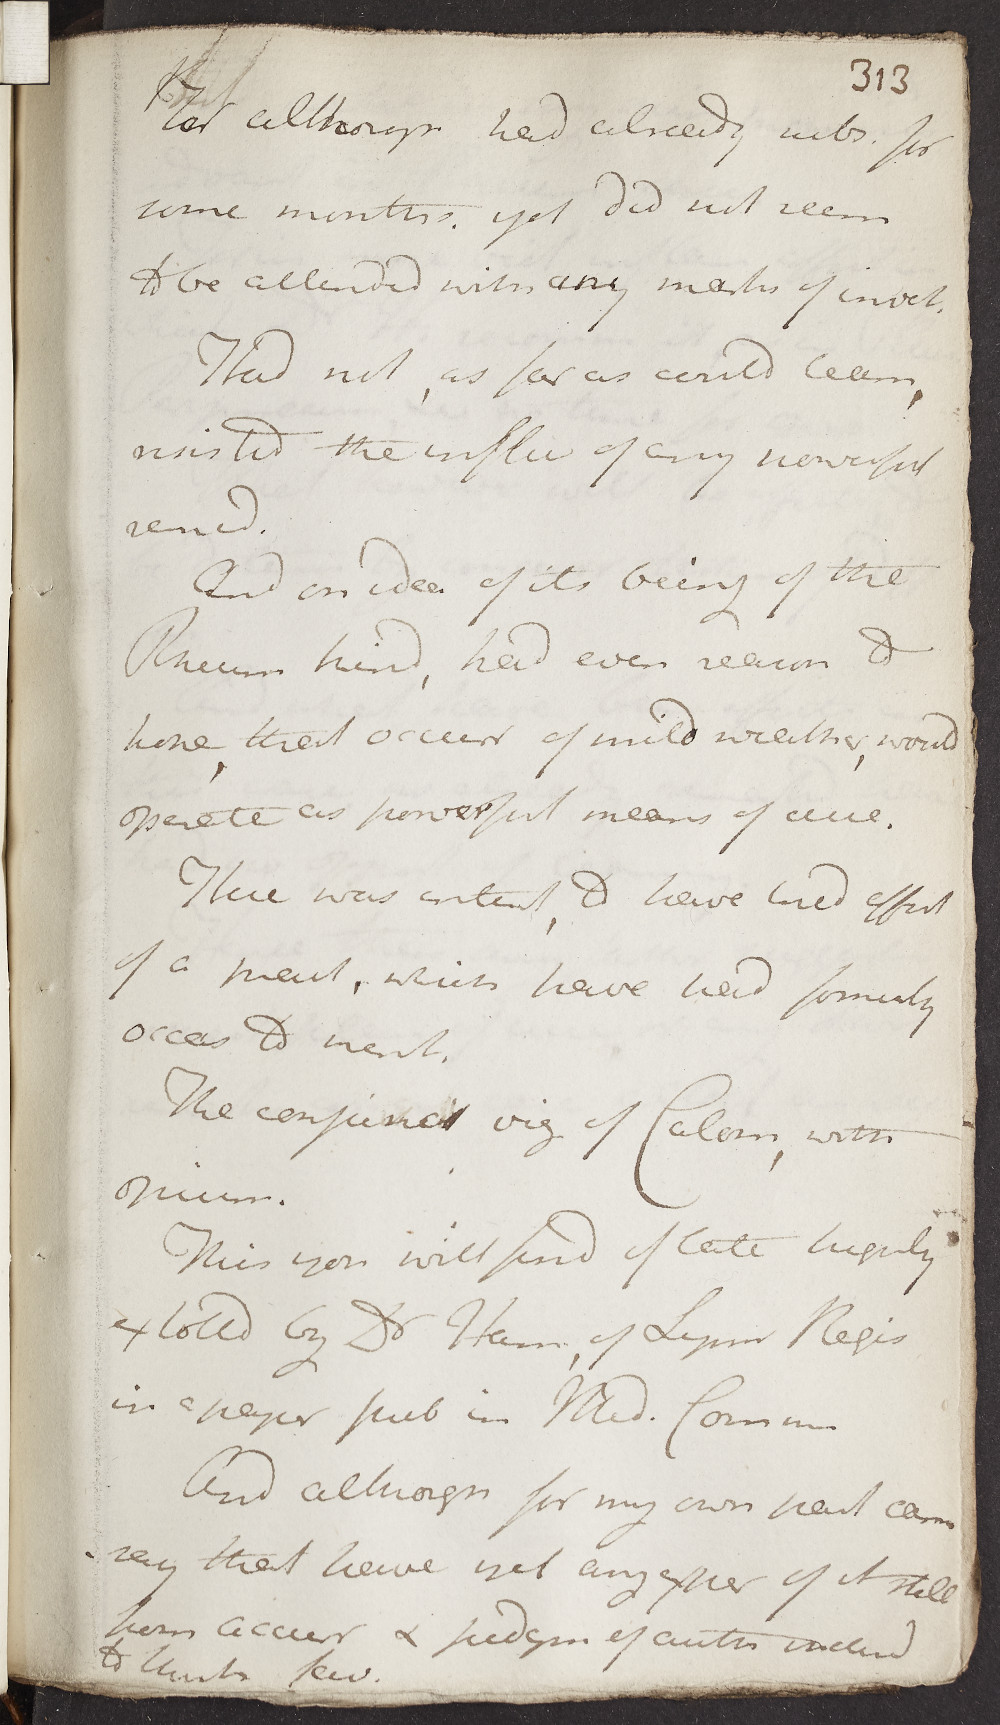 313
For although had already subs. for
some months. yet did not seem
to be attended with any marks of invet.
Had not, as far as could learn,
resisted the influ of any powerful
remed.
And on idea of its being of the
Rheum kind, had even reason to
hope, that occurr of mild weather, would
operate as powerful means of cure.
There was intent, to have tried effect
of a pract, which have had formerly
occas to ment.
The conjunct viz of Calom, with
opium.
This you will find of late highly
extolled by Dr Ham, of Lynn Regis
in a paper pub in Med. Comm
And although for my own part cann
say that have yet any exper of it still
from accur & judgm of auth inclind
to think fav.